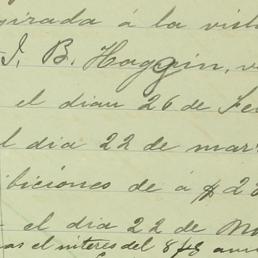 girada á la vista
J. B. Haggin, v
el dia 26 de Fe
l dia 22 de mar
biciones de á $2
el dia 22 de M
as el interes del 8